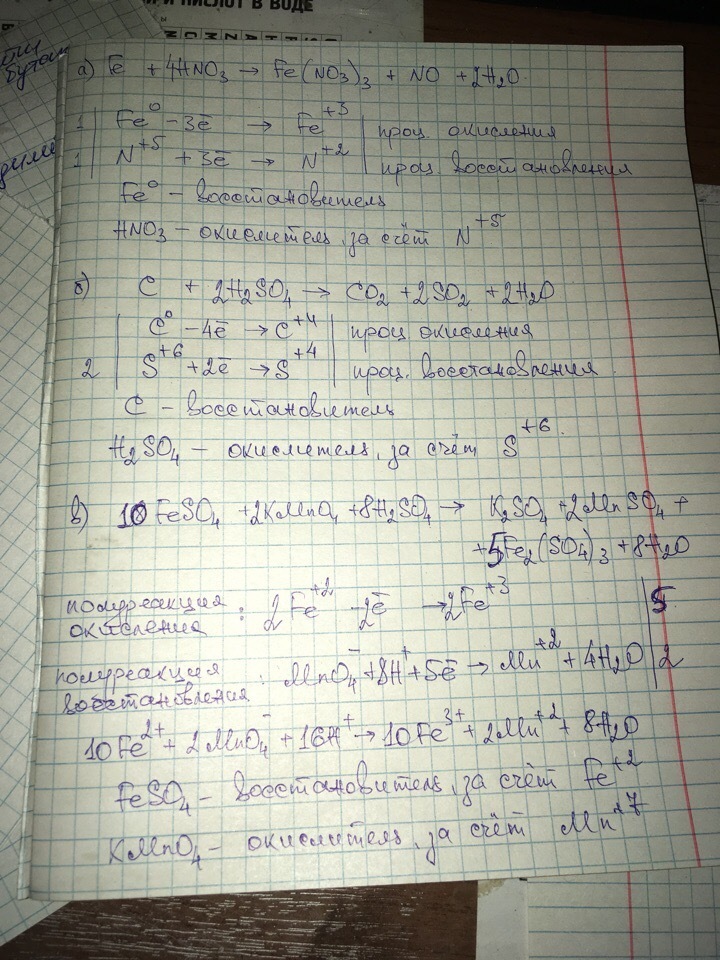 И КИСЛОТ В ВОДЕ
бутан
а) Fe + 4HNO₃ → Fe(NO₃)₃ + NO + 2H₂O
1 | Fe⁰ - 3ē → Fe⁺³ | проц. окисления
1 | N⁺⁵ + 3ē → N⁺² | проц. восстановления
Fe⁰ - восстановитель
HNO₃ - окислитель, за счёт N⁺⁵
б) C + 2H₂SO₄ → CO₂ + 2SO₂ + 2H₂O
| C⁰ - 4ē → C⁺⁴ | проц окисления
2 | S⁺⁶ + 2ē → S⁺⁴ | проц. восстановления
C - восстановитель
H₂SO₄ - окислитель, за счёт S⁺⁶.
в) 10FeSO₄ + 2KMnO₄ + 8H₂SO₄ → K₂SO₄ + 2MnSO₄ +
+ 5Fe₂(SO₄)₃ + 8H₂O
полуреакция окисления : 2Fe⁺² - 2ē → 2Fe⁺³ | 5
полуреакция восстановления : MnO₄⁻ + 8H⁺ + 5ē → Mn⁺² + 4H₂O | 2
10Fe²⁺ + 2MnO₄⁻ + 16H⁺ → 10Fe³⁺ + 2Mn⁺² + 8H₂O
FeSO₄ - восстановитель, за счёт Fe⁺²
KMnO₄ - окислитель, за счёт Mn⁺⁷